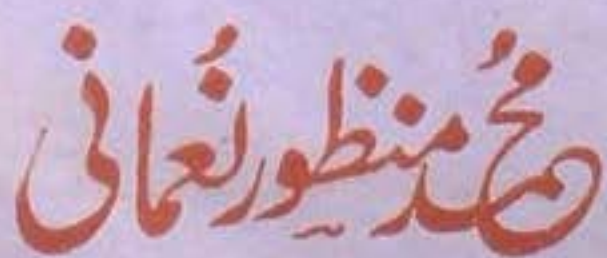 محمد منظور نعمانی